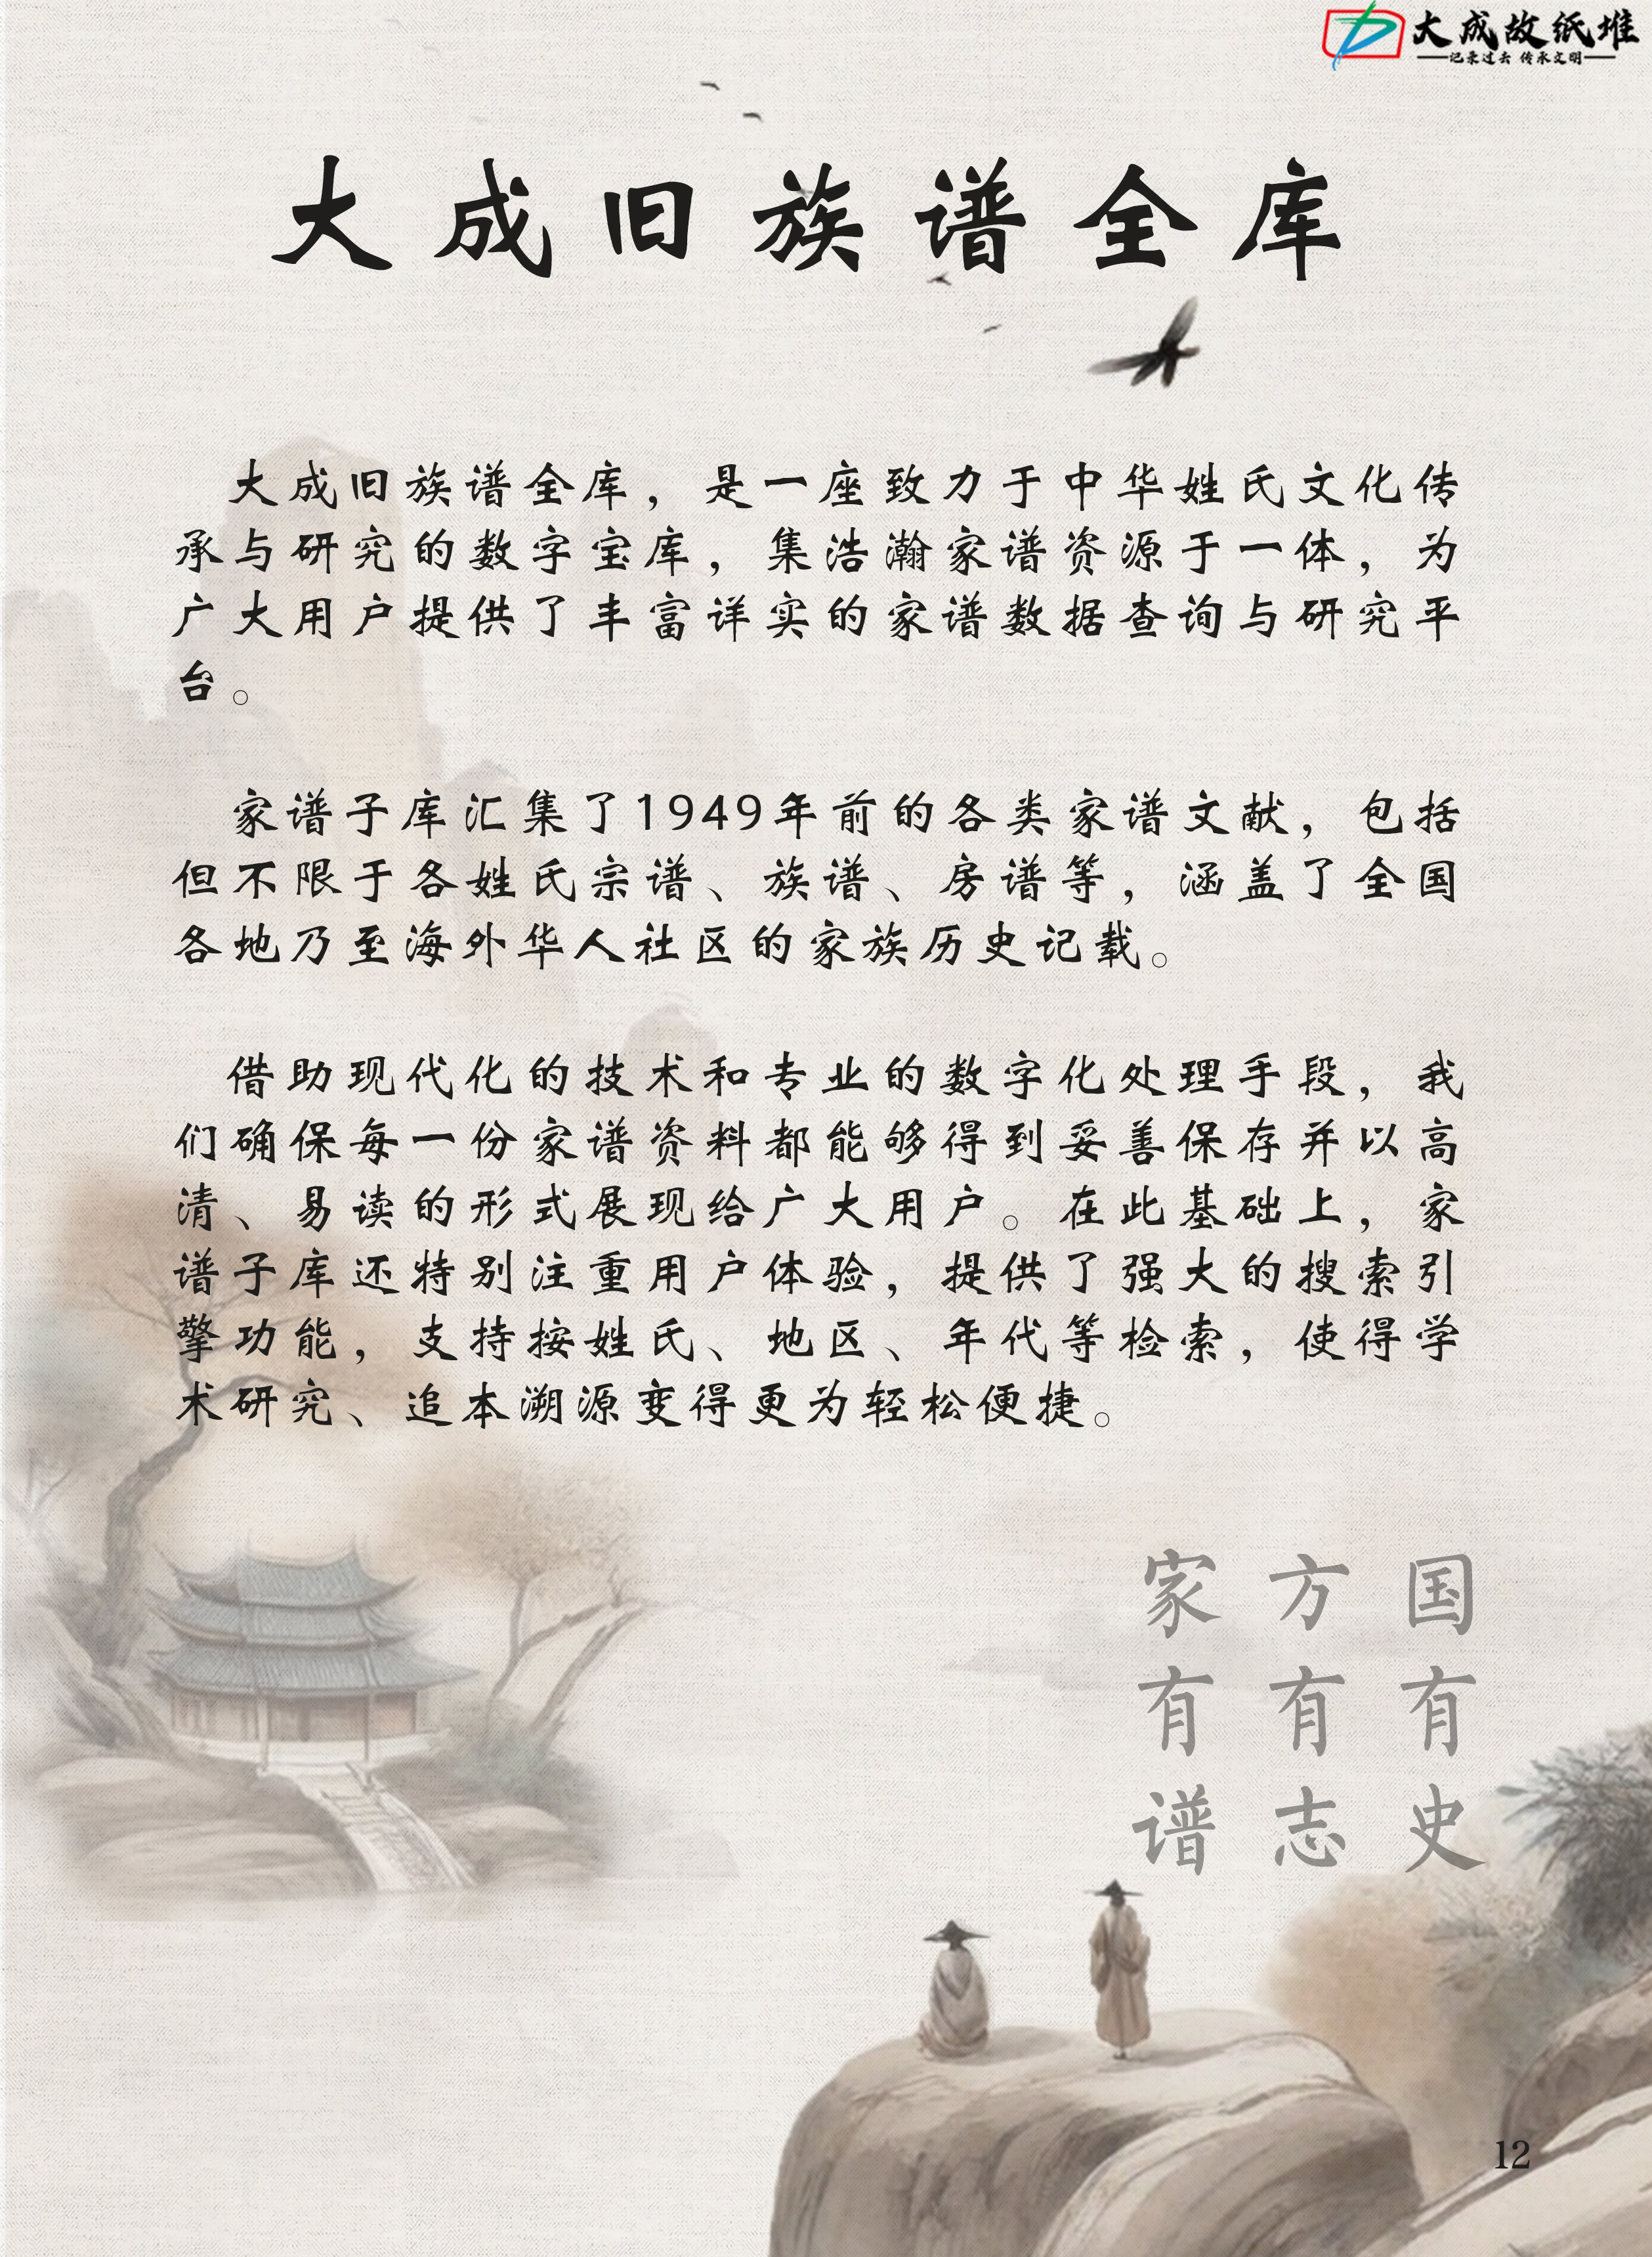 大成故纸堆
记录过去 传承文明
大成旧族谱全库
大成旧族谱全库，是一座致力于中华姓氏文化传
承与研究的数字宝库，集浩瀚家谱资源于一体，为
广大用户提供了丰富详实的家谱数据查询与研究平
台。
家谱子库汇集了1949年前的各类家谱文献，包括
但不限于各姓氏宗谱、族谱、房谱等，涵盖了全国
各地乃至海外华人社区的家族历史记载。
借助现代化的技术和专业的数字化处理手段，我
们确保每一份家谱资料都能够得到妥善保存并以高
清、易读的形式展现给广大用户。在此基础上，家
谱子库还特别注重用户体验，提供了强大的搜索引
擎功能，支持按姓氏、地区、年代等检索，使得学
术研究、追本溯源变得更为轻松便捷。
国有史
方有志
家有谱
12